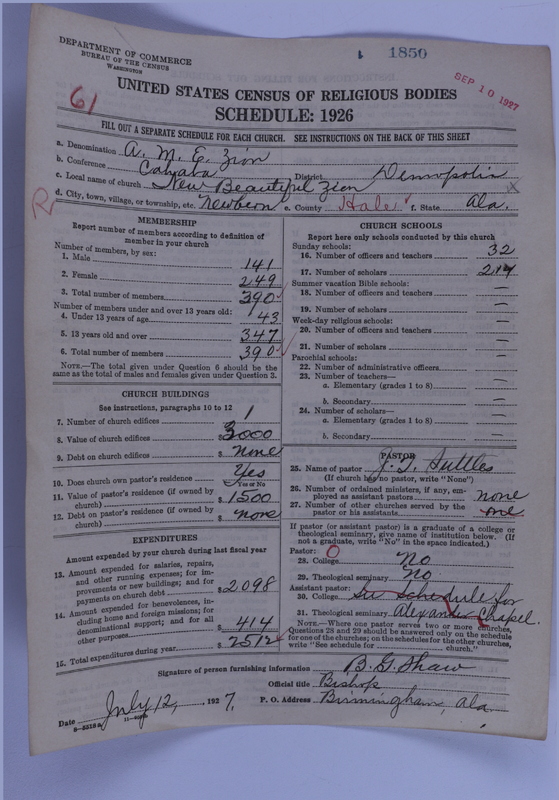 1850
DEPARTMENT OF COMMERCE
BUREAU OF THE CENSUS
WASHINGTON
SEP 10 1927
61
UNITED STATES CENSUS OF RELIGIOUS BODIES
SCHEDULE: 1926
FILL OUT A SEPARATE SCHEDULE FOR EACH CHURCH. SEE INSTRUCTIONS ON THE BACK OF THIS SHEET
a. Denomination A. M. E. Zion
b. Conference Cahaba District Demopolis
c. Local name of church New Beautiful Zion
R d. City, town, village, or township, etc. Newbern e. County Hale f. State Ala.
MEMBERSHIP
Report number of members according to definition of
member in your church
Number of members, by sex:
1. Male 141
2. Female 249
3. Total number of members 390
Number of members under and over 13 years old:
4. Under 13 years of age 43
5. 13 years old and over 347
6. Total number of members 390
NOTE.—The total given under Question 6 should be
same as the total of males and females given under Question 3.
CHURCH BUILDINGS
See instructions, paragraphs 10 to 12
7. Number of church edifices 1
8. Value of church edifices $ 3000
9. Debt on church edifices $ none
10. Does church own pastor's residence Yes
Yes or No
11. Value of pastor's residence (if owned by
church) $ 1500
12. Debt on pastor's residence (if owned by
church) $ none
EXPENDITURES
Amount expended by your church during last fiscal year
13. Amount expended for salaries, repairs,
and other running expenses; for im-
provements or new buildings; and for
payments on church debt $ 2098
14. Amount expended for benevolences, in-
cluding home and foreign missions; for
denominational support; and for all
other purposes $ 414
15. Total expenditures during year $ 2512
CHURCH SCHOOLS
Report here only schools conducted by this church
Sunday schools:
16. Number of officers and teachers 32
17. Number of scholars
Summer vacation Bible schools:
18. Number of officers and teachers —
19. Number of scholars —
Week-day religious schools:
20. Number of officers and teachers —
21. Number of scholars —
Parochial schools:
22. Number of administrative officers —
23. Number of teachers—
a. Elementary (grades 1 to 8) —
b. Secondary —
24. Number of scholars—
a. Elementary (grades 1 to 8) —
b. Secondary —
PASTOR
25. Name of pastor J. T. Suttles
(If church has no pastor, write "None")
26. Number of ordained ministers, if any, em-
ployed as assistant pastors none
27. Number of other churches served by the
pastor or his assistants one
If pastor (or assistant pastor) is a graduate of a college or
theological seminary, give name of institution below. (If
not a graduate, write "No" in the space indicated.)
Pastor: O
28. College No
29. Theological seminary No
Assistant pastor:
30. College See Schedule for
31. Theological seminary Alexander Chapel.
NOTE.—Where one pastor serves two or more churches,
Questions 28 and 29 should be answered only on the schedule
for one of the churches; on the schedules for the other churches,
write "See schedule for church."
Signature of person furnishing information B. G. Shaw
Official title Bishop
Date July 12, 1927. P. O. Address Birmingham, Ala.